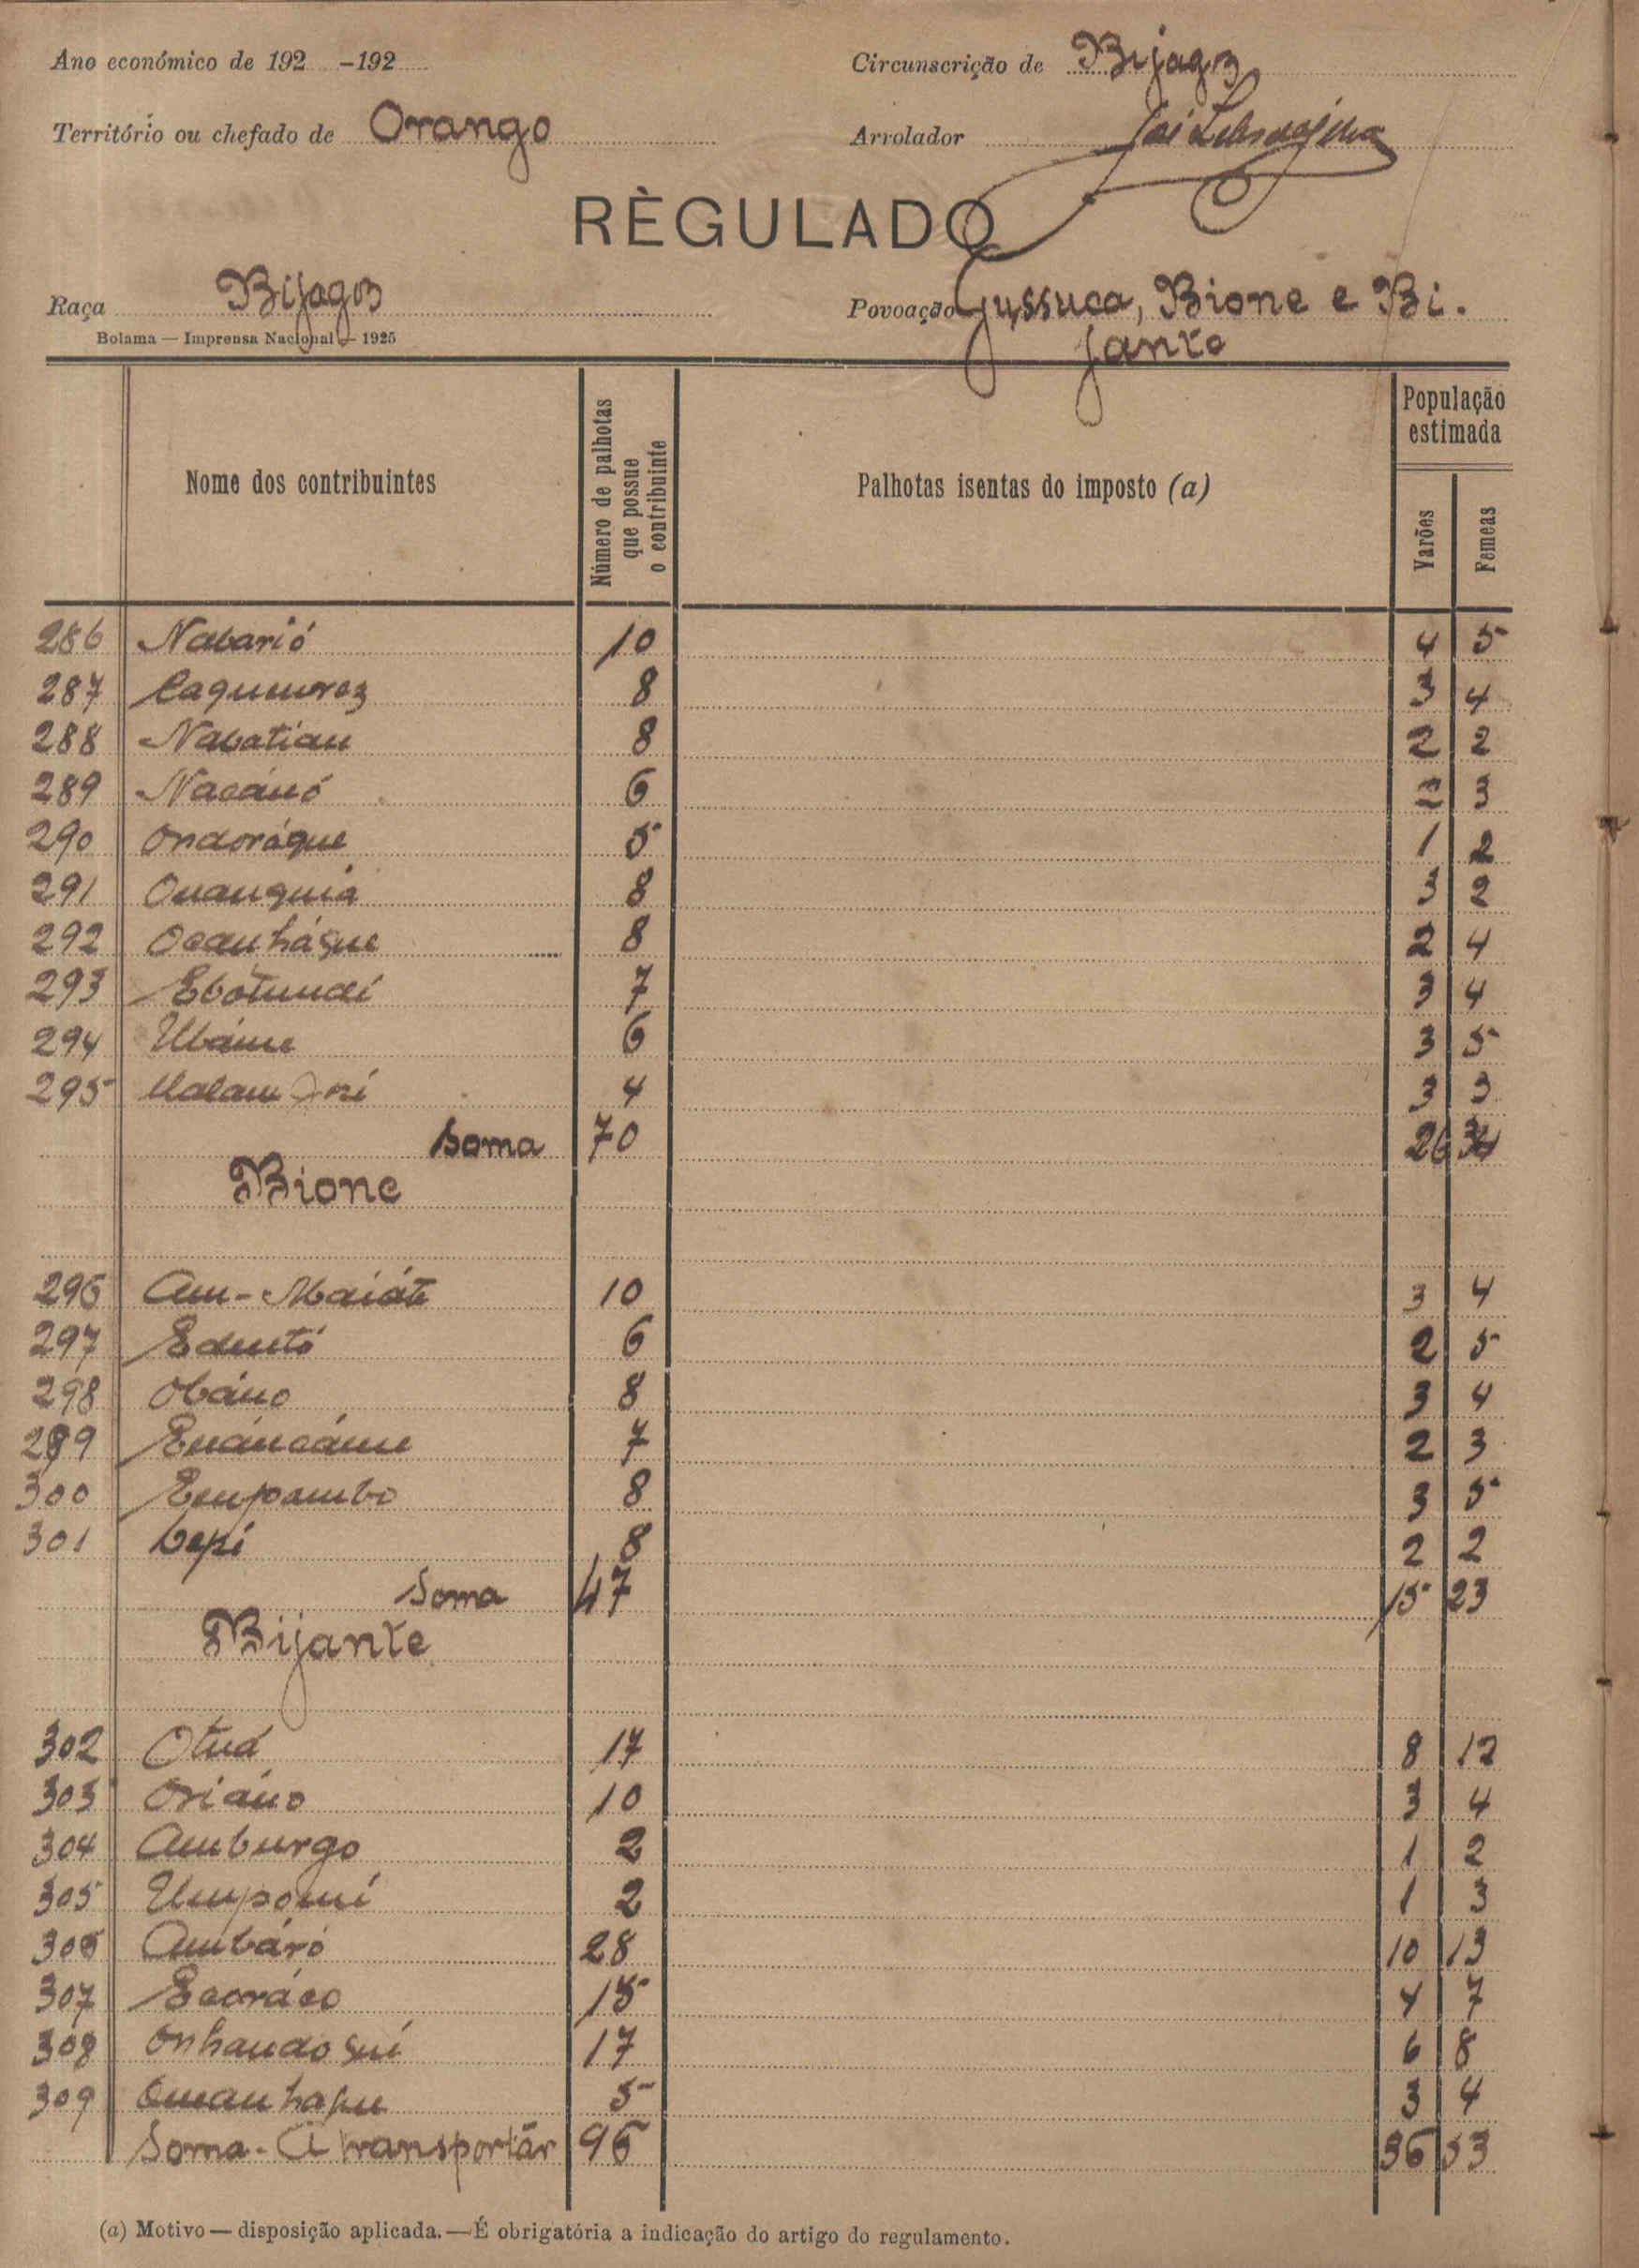 Ano económico de 192 -192
Circunscrição de Bijagoz
Território ou chefado de Orango
Arrolador
RÈGULADO
Raça Bijagoz
Povoação Gussuca, Bione e Bi.
jante
Bolama — Imprensa Nacional — 1925
Nome dos contribuintes
Número de palhotas que possue o contribuinte
Palhotas isentas do imposto (a)
População estimada
Varões
Femeas
286 Nabarió 10 4 5
287 8 3 4
288 Nabatiau 8 2 2
289 Nacánó 6 2 3
290 Ondoráque 5 1 2
291 Ouanquiá 8 3 2
292 Ocanháque 8 2 4
293 Ebotundi 7 3 4
294 Ubáme 6 3 5
295 4 3 3
Soma 70 26 34
Bione
296 Am-Maiáte 10 3 4
297 Edentó 6 2 5
298 Obáno 8 3 4
299 Enáncáme 7 2 3
300 Empambo 8 3 5
301 Sepi 8 2 2
Soma 47 15 23
Bijante
302 Otuá 17 8 12
303 Oriáno 10 3 4
304 Amburgo 2 1 2
305 Umpomi 2 1 3
306 Ambáró 28 10 13
307 Ecoráco 15 4 7
308 Onhandogui 17 6 8
309 5 3 4
Soma - A transportár 96 36 53
(a) Motivo — disposição aplicada. — É obrigatória a indicação do artigo do regulamento.